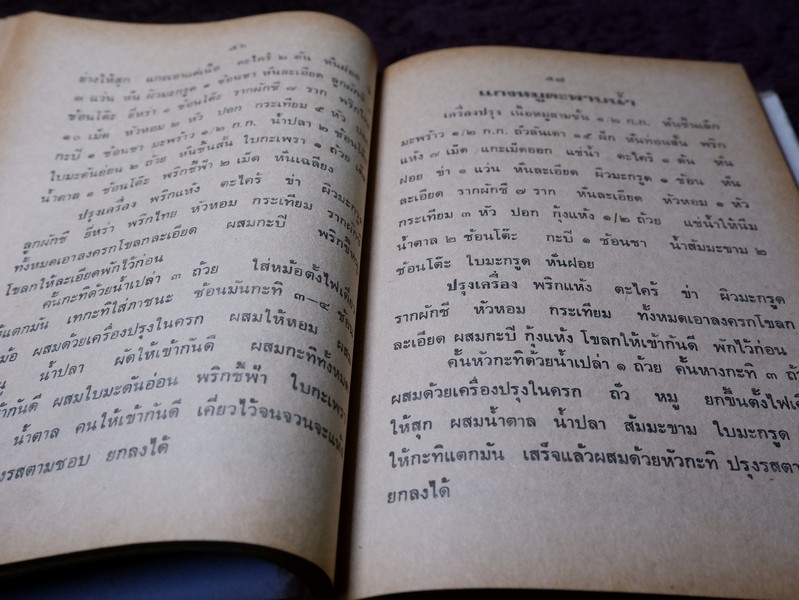 ๕๖
ย่างให้สุก แกะเอาแต่เนื้อ ตะไคร้ ๒ ต้น หั่นฝอย
๓ แว่น หั่น ผิวมะกรูด ๑ ช้อนชา หั่นละเอียด ลูกผักชี
ช้อนโต๊ะ ยี่หร่า ๑ ช้อนโต๊ะ รากผักชี ๗ ราก พริกไทย
๑๐ เม็ด หัวหอม ๒ หัว ปอก กระเทียม ๕ หัว
กะปิ ๑ ช้อนชา มะพร้าว ๑/๒ ก.ก. น้ำปลา ๒ ช้อนโต๊ะ
ใบมะดันอ่อน ๒ ถ้วย หั่นชิ้นสั้น ใบกะเพรา ๑ ถ้วย
น้ำตาล ๑ ช้อนโต๊ะ พริกชี้ฟ้า ๒ เม็ด หั่นเฉลียง
ปรุงเครื่อง พริกแห้ง ตะไคร้ ข่า ผิวมะกรูด
ลูกผักชี ยี่หร่า พริกไทย หัวหอม กระเทียม รากผักชี
ทั้งหมดเอาลงครกโขลกละเอียด ผสมกะปิ พริกชี้ฟ้า
โขลกให้ละเอียดพักไว้ก่อน
คั้นกะทิด้วยน้ำเปล่า ๓ ถ้วย ใส่หม้อตั้งไฟเคี่ยว
แตกมัน เทกะทิใส่ภาชนะ ช้อนมันกะทิ ๓-๔ ช้อน
ผสมด้วยเครื่องปรุงในครก ผสมให้หอม ผสม
น้ำปลา ผัดให้เข้ากันดี ผสมกะทิทั้งหมด
เข้ากันดี ผสมใบมะดันอ่อน พริกชี้ฟ้า ใบกะเพรา
น้ำตาล คนให้เข้ากันดี เคี่ยวไว้จนจวนจะแห้ง
ปรุงรสตามชอบ ยกลงได้
๕๗
แกงหมูตะพาบน้ำ
เครื่องปรุง เนื้อหมูสามชั้น ๑/๒ ก.ก. หั่นชิ้นเล็ก
มะพร้าว ๑/๒ ก.ก. ถั่วลันเตา ๑๕ ฝัก หั่นท่อนสั้น พริก
แห้ง ๗ เม็ด แกะเม็ดออก แช่น้ำ ตะไคร้ ๑ ต้น หั่น
ฝอย ข่า ๑ แว่น หั่นละเอียด ผิวมะกรูด ๑ ช้อน หั่น
ละเอียด รากผักชี ๗ ราก หั่นละเอียด หัวหอม ๑ หัว
กระเทียม ๓ หัว ปอก กุ้งแห้ง ๑/๒ ถ้วย แช่น้ำให้นิ่ม
น้ำตาล ๒ ช้อนโต๊ะ กะปิ ๑ ช้อนชา น้ำส้มมะขาม ๒
ช้อนโต๊ะ ใบมะกรูด หั่นฝอย
ปรุงเครื่อง พริกแห้ง ตะไคร้ ข่า ผิวมะกรูด
รากผักชี หัวหอม กระเทียม ทั้งหมดเอาลงครกโขลก
ละเอียด ผสมกะปิ กุ้งแห้ง โขลกให้เข้ากันดี พักไว้ก่อน
คั้นหัวกะทิด้วยน้ำเปล่า ๑ ถ้วย คั้นหางกะทิ ๓ ถ้วย
ผสมด้วยเครื่องปรุงในครก ถั่ว หมู ยกขึ้นตั้งไฟเคี่ยว
ให้สุก ผสมน้ำตาล น้ำปลา ส้มมะขาม ใบมะกรูด
ให้กะทิแตกมัน เสร็จแล้วผสมด้วยหัวกะทิ ปรุงรสตาม
ยกลงได้